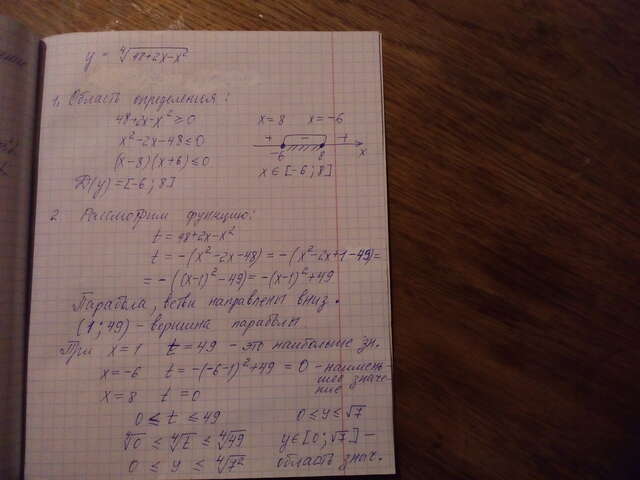 y = ⁴√(48+2x-x²)
1. Область определения:
48+2x-x² ≥ 0 x=8 x=-6
x²-2x-48 ≤ 0 + - +
(x-8)(x+6) ≤ 0 -6 8 x
D(y)=[-6;8] x∈[-6;8]
2. Рассмотрим функцию:
t = 48+2x-x²
t = -(x²-2x-48) = -(x²-2x+1-49)=
= -((x-1)²-49)= -(x-1)²+49
Парабола, ветви направлены вниз.
(1;49) - вершина параболы
При x=1 t=49 - это наибольше зн.
x=-6 t=-(-6-1)²+49 = 0 - наимень
шее значе
ние
x=8 t=0
0 ≤ t ≤ 49 0 ≤ y ≤ √7
⁴√0 ≤ ⁴√t ≤ ⁴√49 y∈[0;√7] -
0 ≤ y ≤ ⁴√7² область знач.